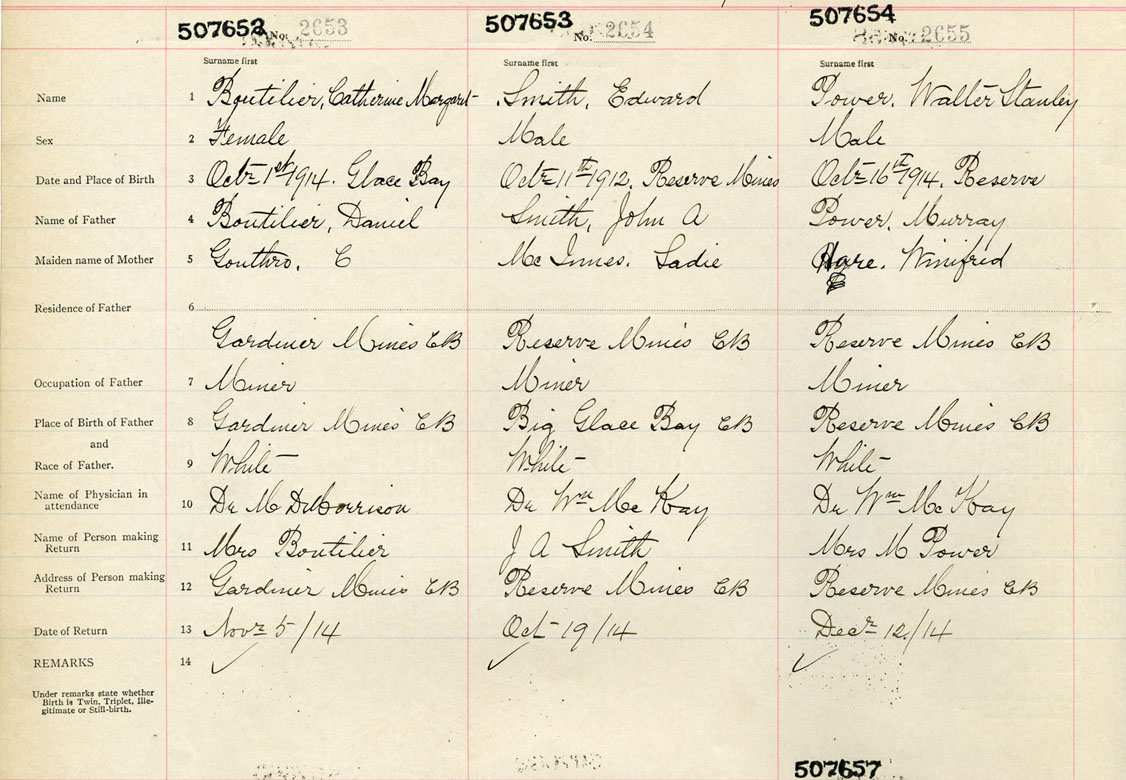 507652 507653 507654
No. 2653 No. 2654 No. 2655
Surname first Surname first Surname first
Name 1 Boutilier, Catherine Margaret Smith, Edward Power, Walter Stanley
Sex 2 Female Male Male
Date and Place of Birth 3 Octr 1st 1914. Glace Bay Octr 11th 1912. Reserve Mines Octr 16th 1914. Reserve
Name of Father 4 Boutilier, Daniel Smith, John A Power, Murray
Maiden name of Mother 5 Gouthro, C Mc Innes. Sadie Hare. Winifred
Residence of Father 6
Gardiner Mines CB Reserve Mines CB Reserve Mines CB
Occupation of Father 7 Miner Miner Miner
Place of Birth of Father 8 Gardiner Mines CB Big Glace Bay CB Reserve Mines CB
and
Race of Father. 9 White White White
Name of Physician in
attendance 10 Dr M D Morrison Dr Wm Mc Kay Dr Wm Mc Kay
Name of Person making
Return 11 Mrs Boutilier J A Smith Mrs M Power
Address of Person making
Return 12 Gardiner Mines CB Reserve Mines CB Reserve Mines CB
Date of Return 13 Novr 5/14 Oct 19/14 Decr 12/14
REMARKS 14
Under remarks state whether
Birth is Twin, Triplet, Ille-
gitimate or Still-birth.
507657